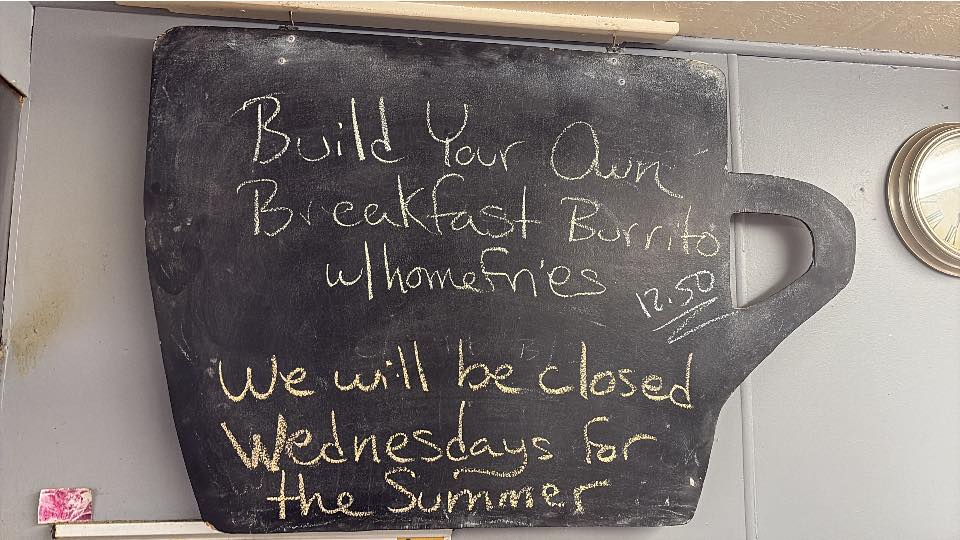 Build Your Own
Breakfast Burrito
w/homefries
12.50
We will be closed
Wednesdays for
the Summer